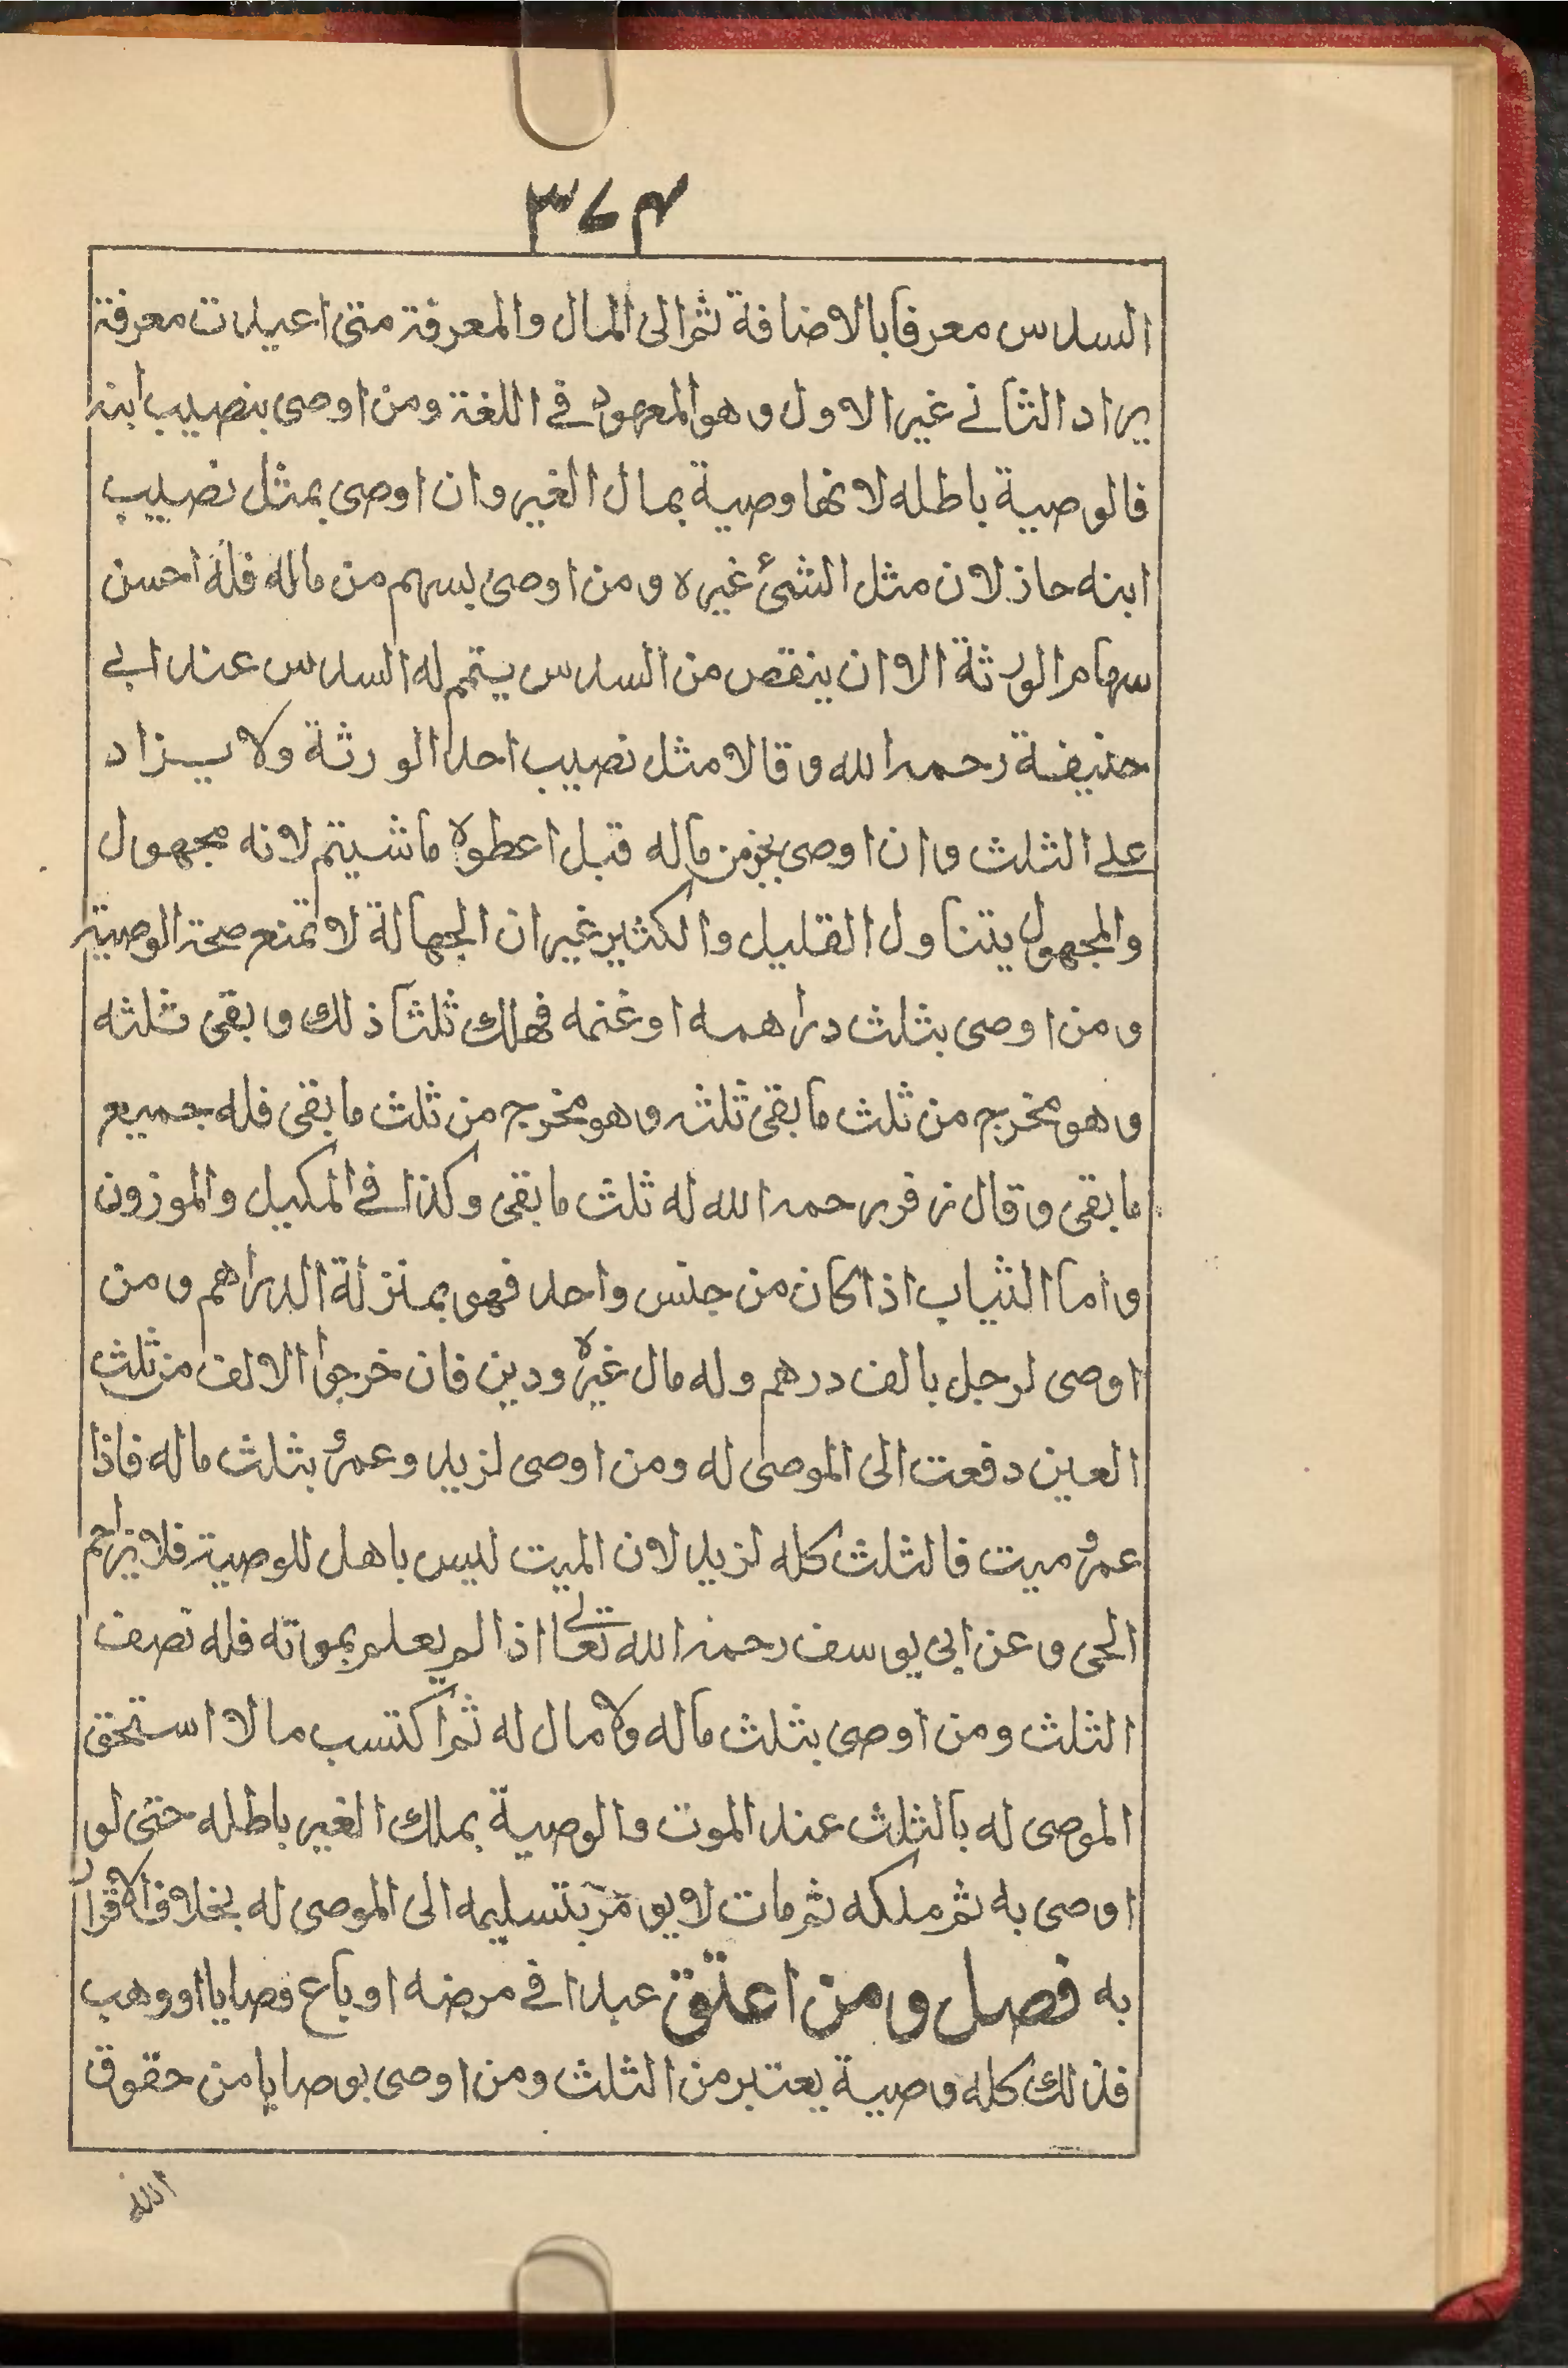 ٣٧٤
السدس معرفا بالاضافة ثم الى المال والمعرفة متى اعيدت معرفة
يراد الثاني غير الاول وهو المعهود في اللغة ومن اوصى بنصيب ابنه
فالوصية باطله لانها وصية بمال الغير وان اوصى بمثل نصيب
ابنه جاز لان مثل الشئ غيره ومن اوصى بسهم من ماله فله احسن
سهام الورثة الا ان ينقص من السدس يتمم له السدس عند ابي
حنيفة رحمه الله وقالا مثل نصيب احد الورثة ولا يزاد
على الثلث وان اوصى بجز من ماله قبل اعطوه ما شيتم لانه مجهول
والمجهول يتناول القليل والكثير غير ان الجهالة لا تمنع صحة الوصية
ومن اوصى بثلث دراهمه او غنمه فهلك ثلثا ذلك وبقى ثلثه
وهو مخرج من ثلث ما بقى ثلثه وهو مخرج من ثلث ما بقى فله جميع
ما بقى وقال زفر رحمه الله له ثلث ما بقى وكذا في المكيل والموزون
واما الثياب اذا كان من جنس واحد فهو بمنزلة الدراهم ومن
اوصى لرجل بالف درهم وله مال غيره ودين فان خرجوا الالف من ثلث
العين دفعت الى الموصى له ومن اوصى لزيد وعمرو بثلث ماله فاذا
عمرو ميت فالثلث كله لزيد لان الميت ليس باهل للوصية فلا يزاحم
الحى وعن ابى يوسف رحمه الله تعالى اذا لم يعلم بموته فله نصف
الثلث ومن اوصى بثلث ماله ولا مال له ثم اكتسب مالا استحق
الموصى له بالثلث عند الموت والوصية بملك الغير باطله حتى لو
اوصى به ثم ملكه ثم مات لا يومر بتسليمه الى الموصى له بخلاف الاقرار
به فصل ومن اعتق عبدا في مرضه او باع فصايا او وهب
فذلك كله وصية يعتبر من الثلث ومن اوصى بوصايا من حقوق
الله